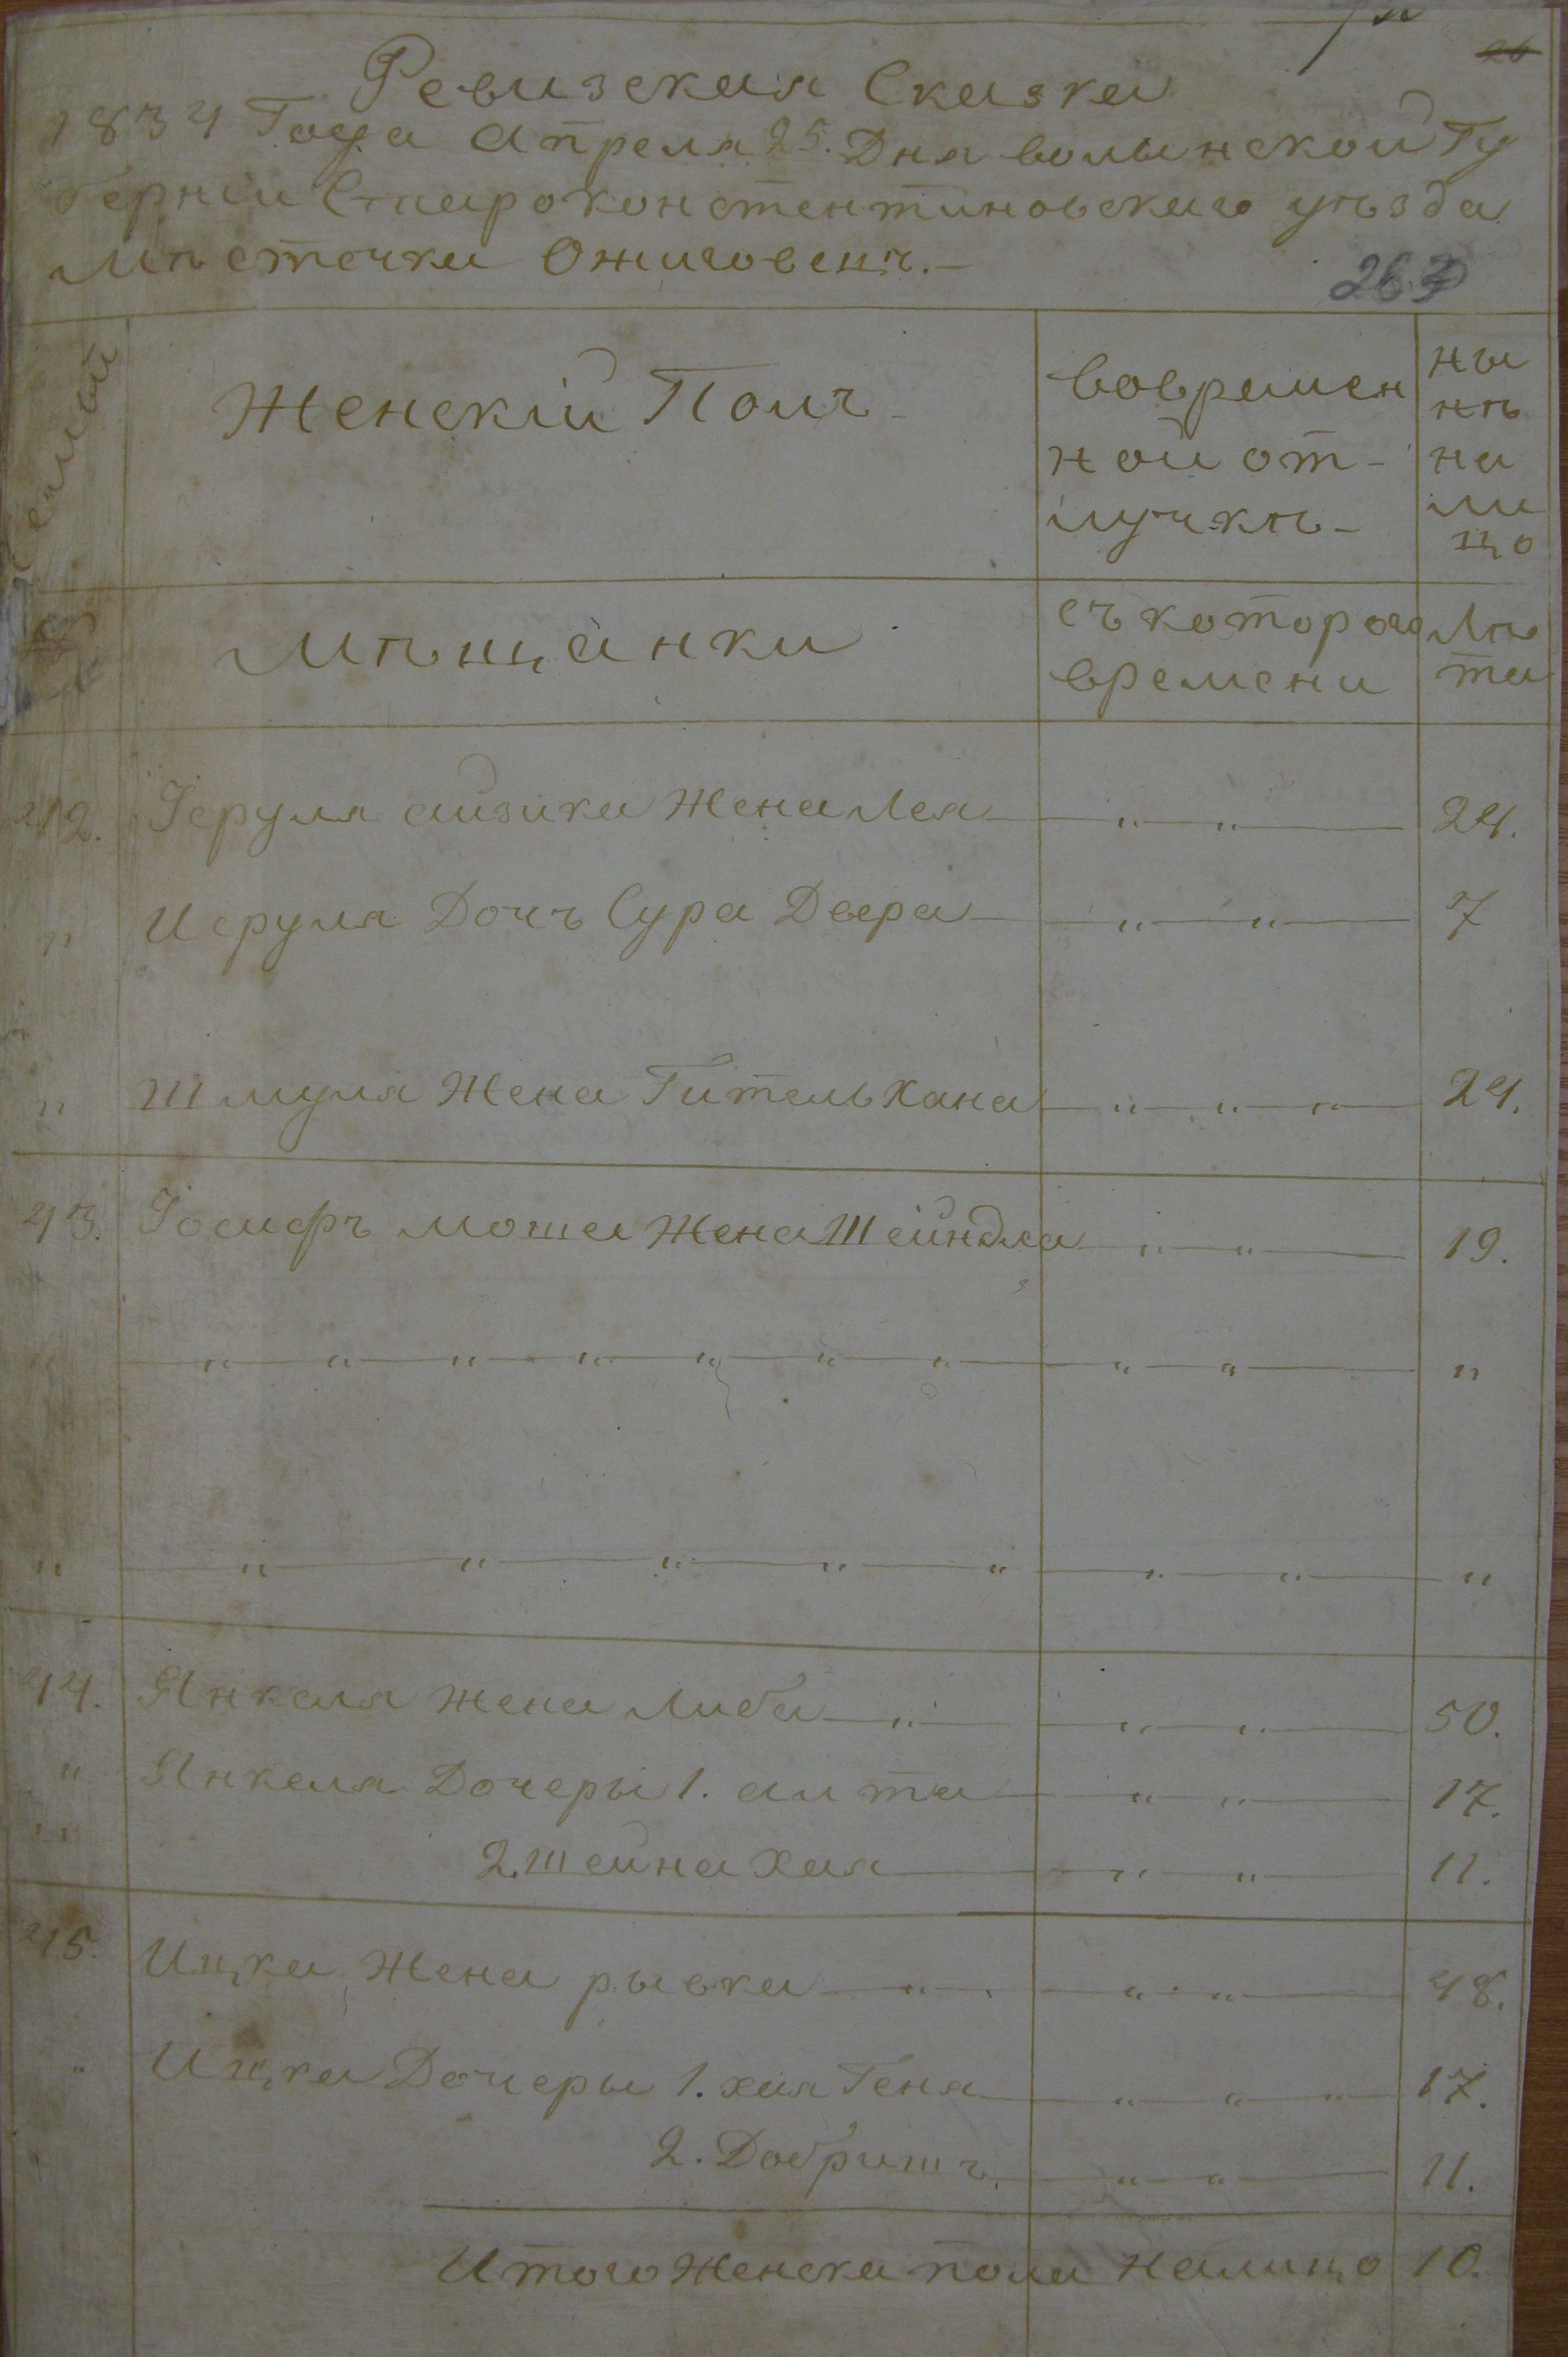 Ревизская Сказка
1834 Года Апреля 25. Дня волынской Гу
бернiи Староконстентиновскаго уѣзда
мѣстечка Ожиговецъ.—
263
Женскiй Полъ
вовремен
ной от-
лучкѣ-
ны
нѣ
на
ли
цо
мѣщанки
съ котораго
времени
Лѣ
та
42. Iеруля айзика Жена Лея " " 24.
" Иеруля Дочъ Сура Двера " " 7
" Шмуля Жена Гитель Хана " " " 24.
43. Iосифъ мошка Жена Шейндла " " 19.
" " " " " " " " " "
" " " " " " " " "
44. Янкеля жена Либа " " " 50.
" Янкеля Дочеры 1. алта " " 17.
" 2. шейна Хая " " 11.
45. Ицка Жена рывка " " " 48.
" Ицка Дочеры 1. хая Геня " " " 17.
2. Добришъ " " 11.
Итого Женска пола налицо 10.